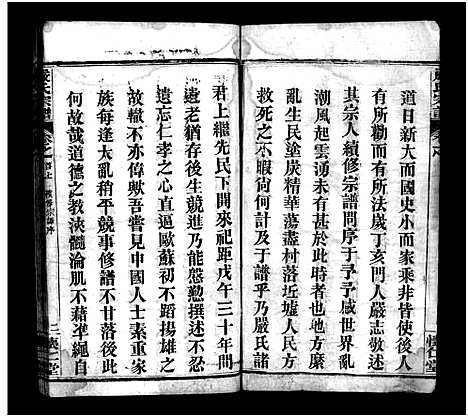 道日新大而國史小而家乘非皆使後人
有所勸而有所法歲丁亥門人嚴志敬述
其宗人續修宗譜問序于予予感世界亂
潮風起雲湧未有甚於此時者也地方糜
亂生民塗炭精華蕩盡村落近墟人民方
救死之不暇尙何計及于譜乎乃嚴氏諸
懷仁堂
嚴氏宗譜
君上繼先民下開來祀距戊午三十年間
遺老猶存後生競進乃能慇懃撰述不忍
遺忘仁孝之心直逼歐蘇初不蹈揚雄之
故轍不亦偉歟吾嘗見中國人士素重家
族每逢大亂稍平競事修譜不甘落後此
何故哉道德之教浹髓淪肌不藉準繩自